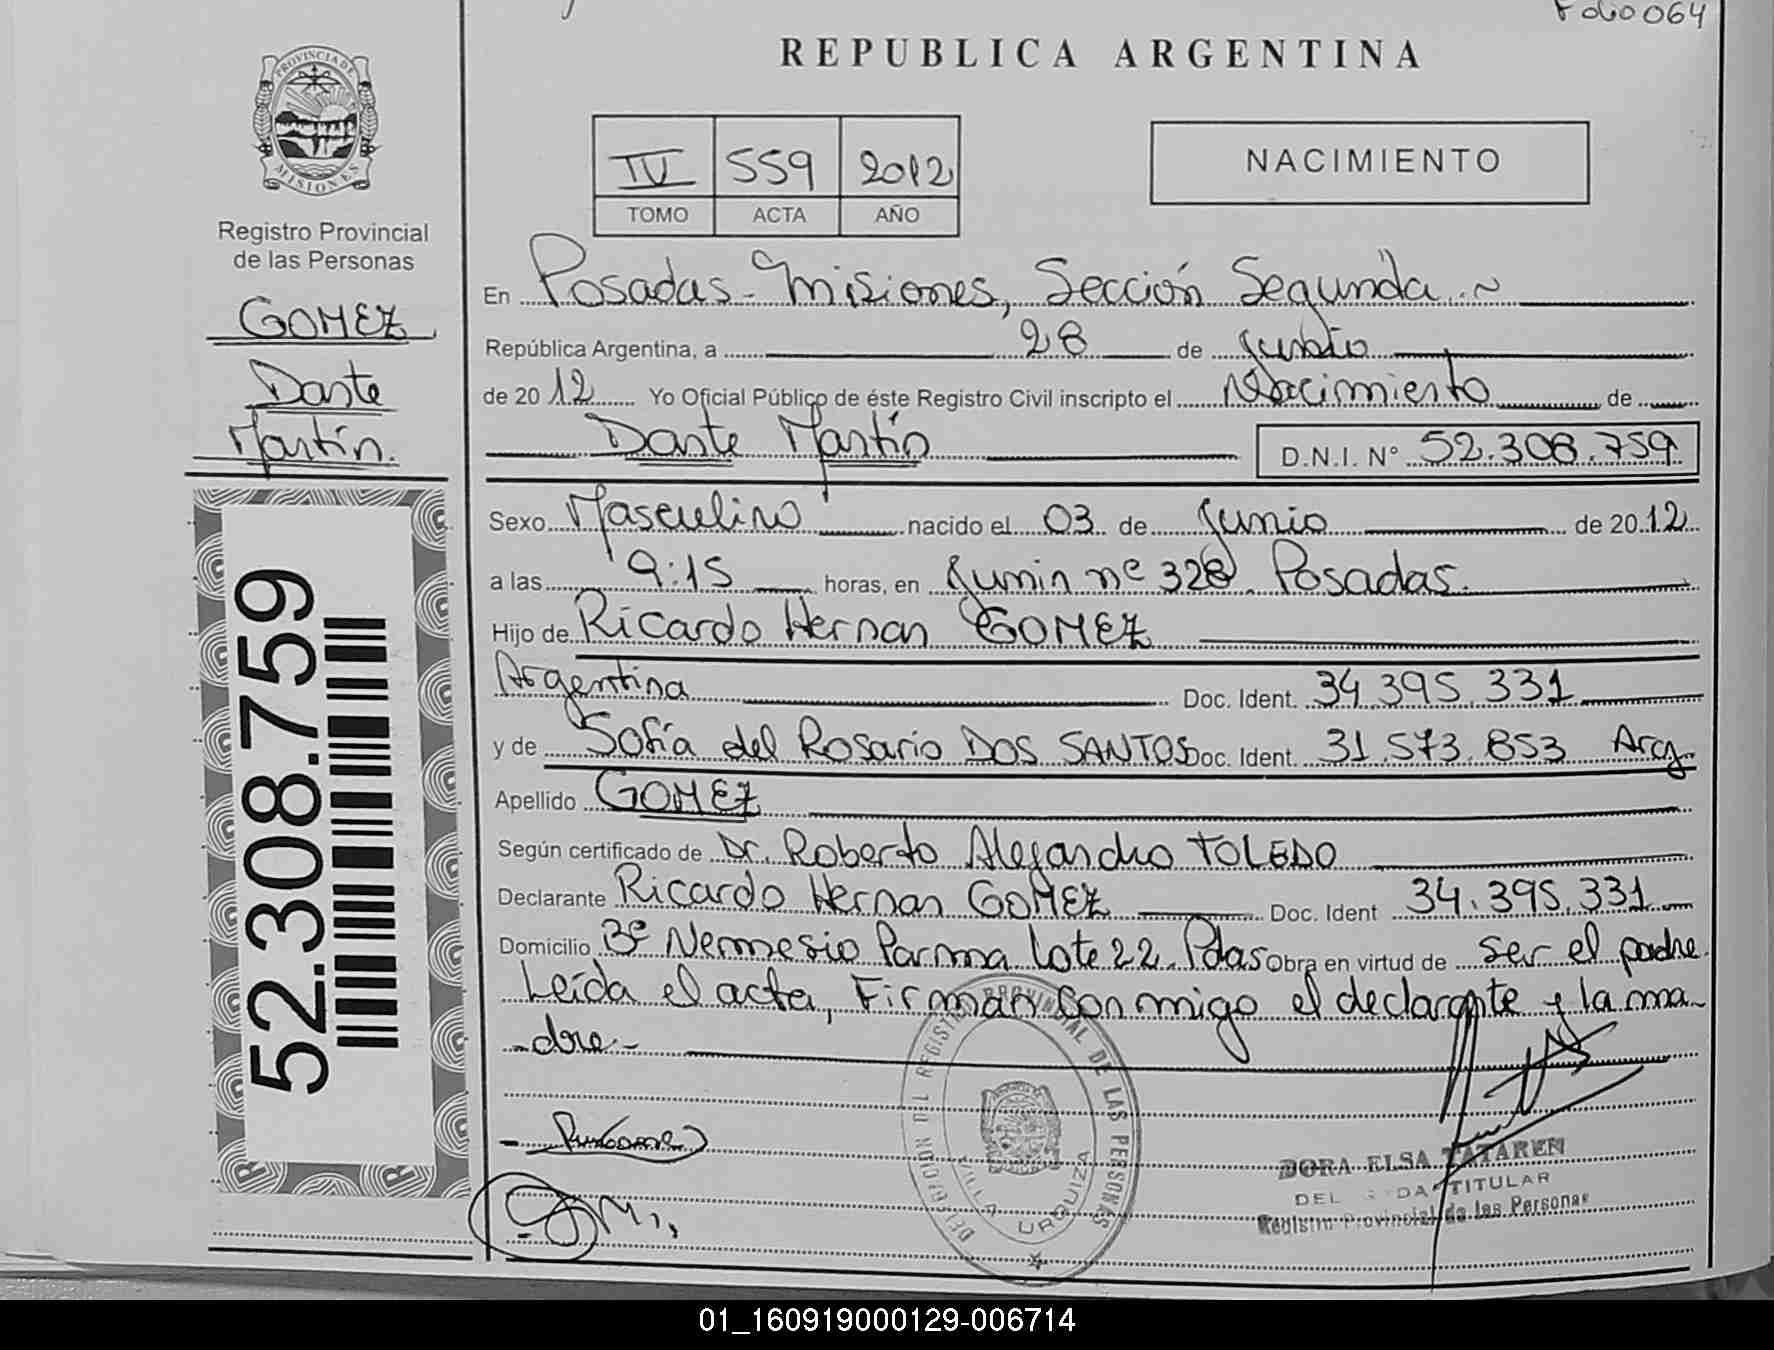 Folio 064
REPUBLICA ARGENTINA
PROVINCIA DE
MISIONES
Registro Provincial
de las Personas
GOMEZ
Dante
Martín.
52.308.759
IV 559 2012
TOMO ACTA AÑO
NACIMIENTO
En Posadas - Misiones, Sección Segunda
República Argentina, a 28 de Junio
de 2012 Yo Oficial Público de éste Registro Civil inscripto el Nacimiento de
Dante Martín D.N.I. N° 52.308.759
Sexo Masculino nacido el 03 de Junio de 2012
a las 9:15 horas, en Junin nº 328. Posadas.
Hijo de Ricardo Hernan GOMEZ
Argentina Doc. Ident. 34.395.331
y de Sofía del Rosario DOS SANTOS Doc. Ident. 31.573.853 Arg.
Apellido GOMEZ
Según certificado de Dr. Roberto Alejandro TOLEDO
Declarante Ricardo Hernan GOMEZ Doc. Ident 34.395.331
Domicilio Bº Nemesio Parma Lote 22. Pdas Obra en virtud de ser el padre.
Leída el acta, Firman conmigo el declarante y la ma-
-dre-
DELEGACION DEL REGISTRO PROVINCIAL DE LAS PERSONAS
VILLA URQUIZA
DORA ELSA TATAREN
DELEGADA TITULAR
Registro Provincial de las Personas
01_160919000129-006714